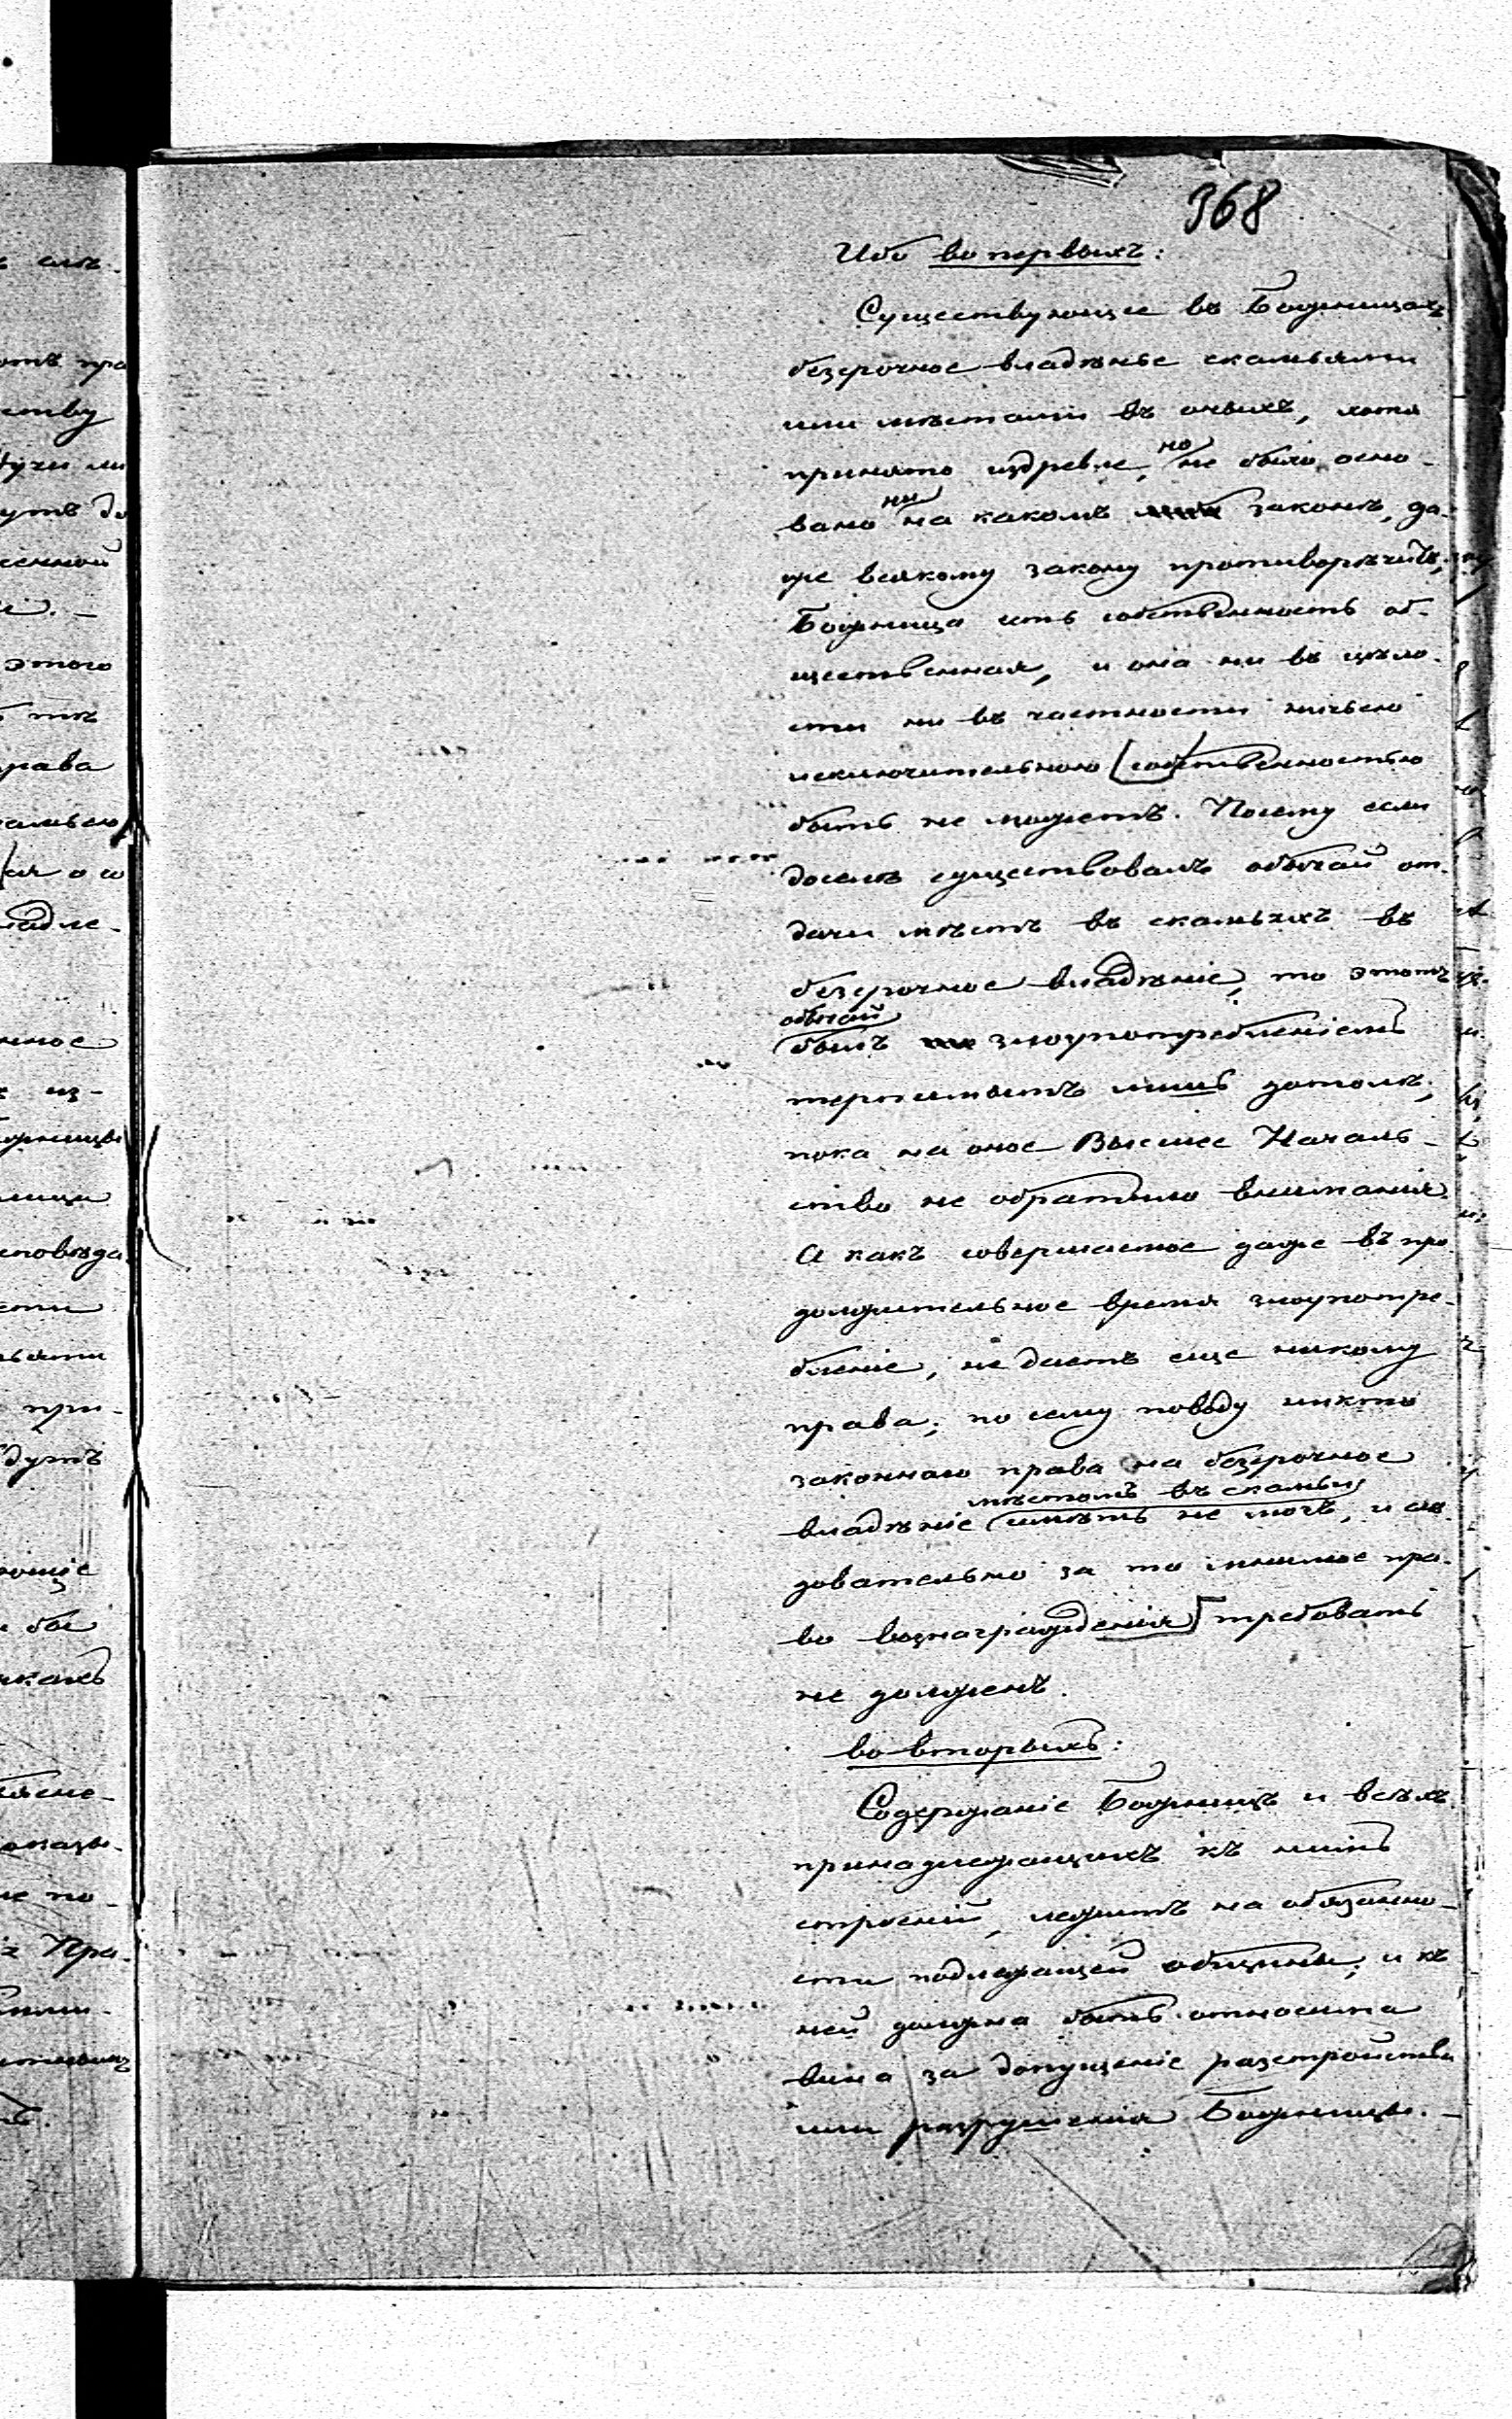 368
Ибо во первыхъ:
Существующее въ Божницахъ
безсрочное владѣнье скамьями
или мѣстами въ оныхъ, хотя
принято издревле, но не было осно-
вано ни на какомъ законѣ, да-
же всякому закону противорѣчитъ,
Божница есть собственность об-
щественная, и она ни въ цѣло-
сти ни въ частности ничьею
исключительною собственностью
быть не можетъ. Посему если
доселѣ существовалъ обычай от-
дачи мѣстъ въ скамьяхъ въ
безсрочное владѣніе, то этотъ
обычай
былъ злоупотребленіемъ
терпимымъ лишь дотолѣ,
пока на оное Высшее Началь-
ство не обратило вниманія.
А какъ совершаемое даже въ про-
должительное время злоупотре-
бленіе, не даетъ еще никому
права; по сему поводу никто
законнаго права на безсрочное
мѣстомъ въ скамьи
владѣніе имѣть не могъ, и слѣ-
довательно за то мнимое пра-
во вознагражденія требовать
не долженъ.
во вторыхъ:
Содержаніе Божницъ и всѣхъ
принадлежащихъ къ нимъ
строеній, лежитъ на обязанно-
сти подлежащей общины, и къ
ней должна быть относима
вина за допущеніе разстройства
или разрушенія Божницы.—